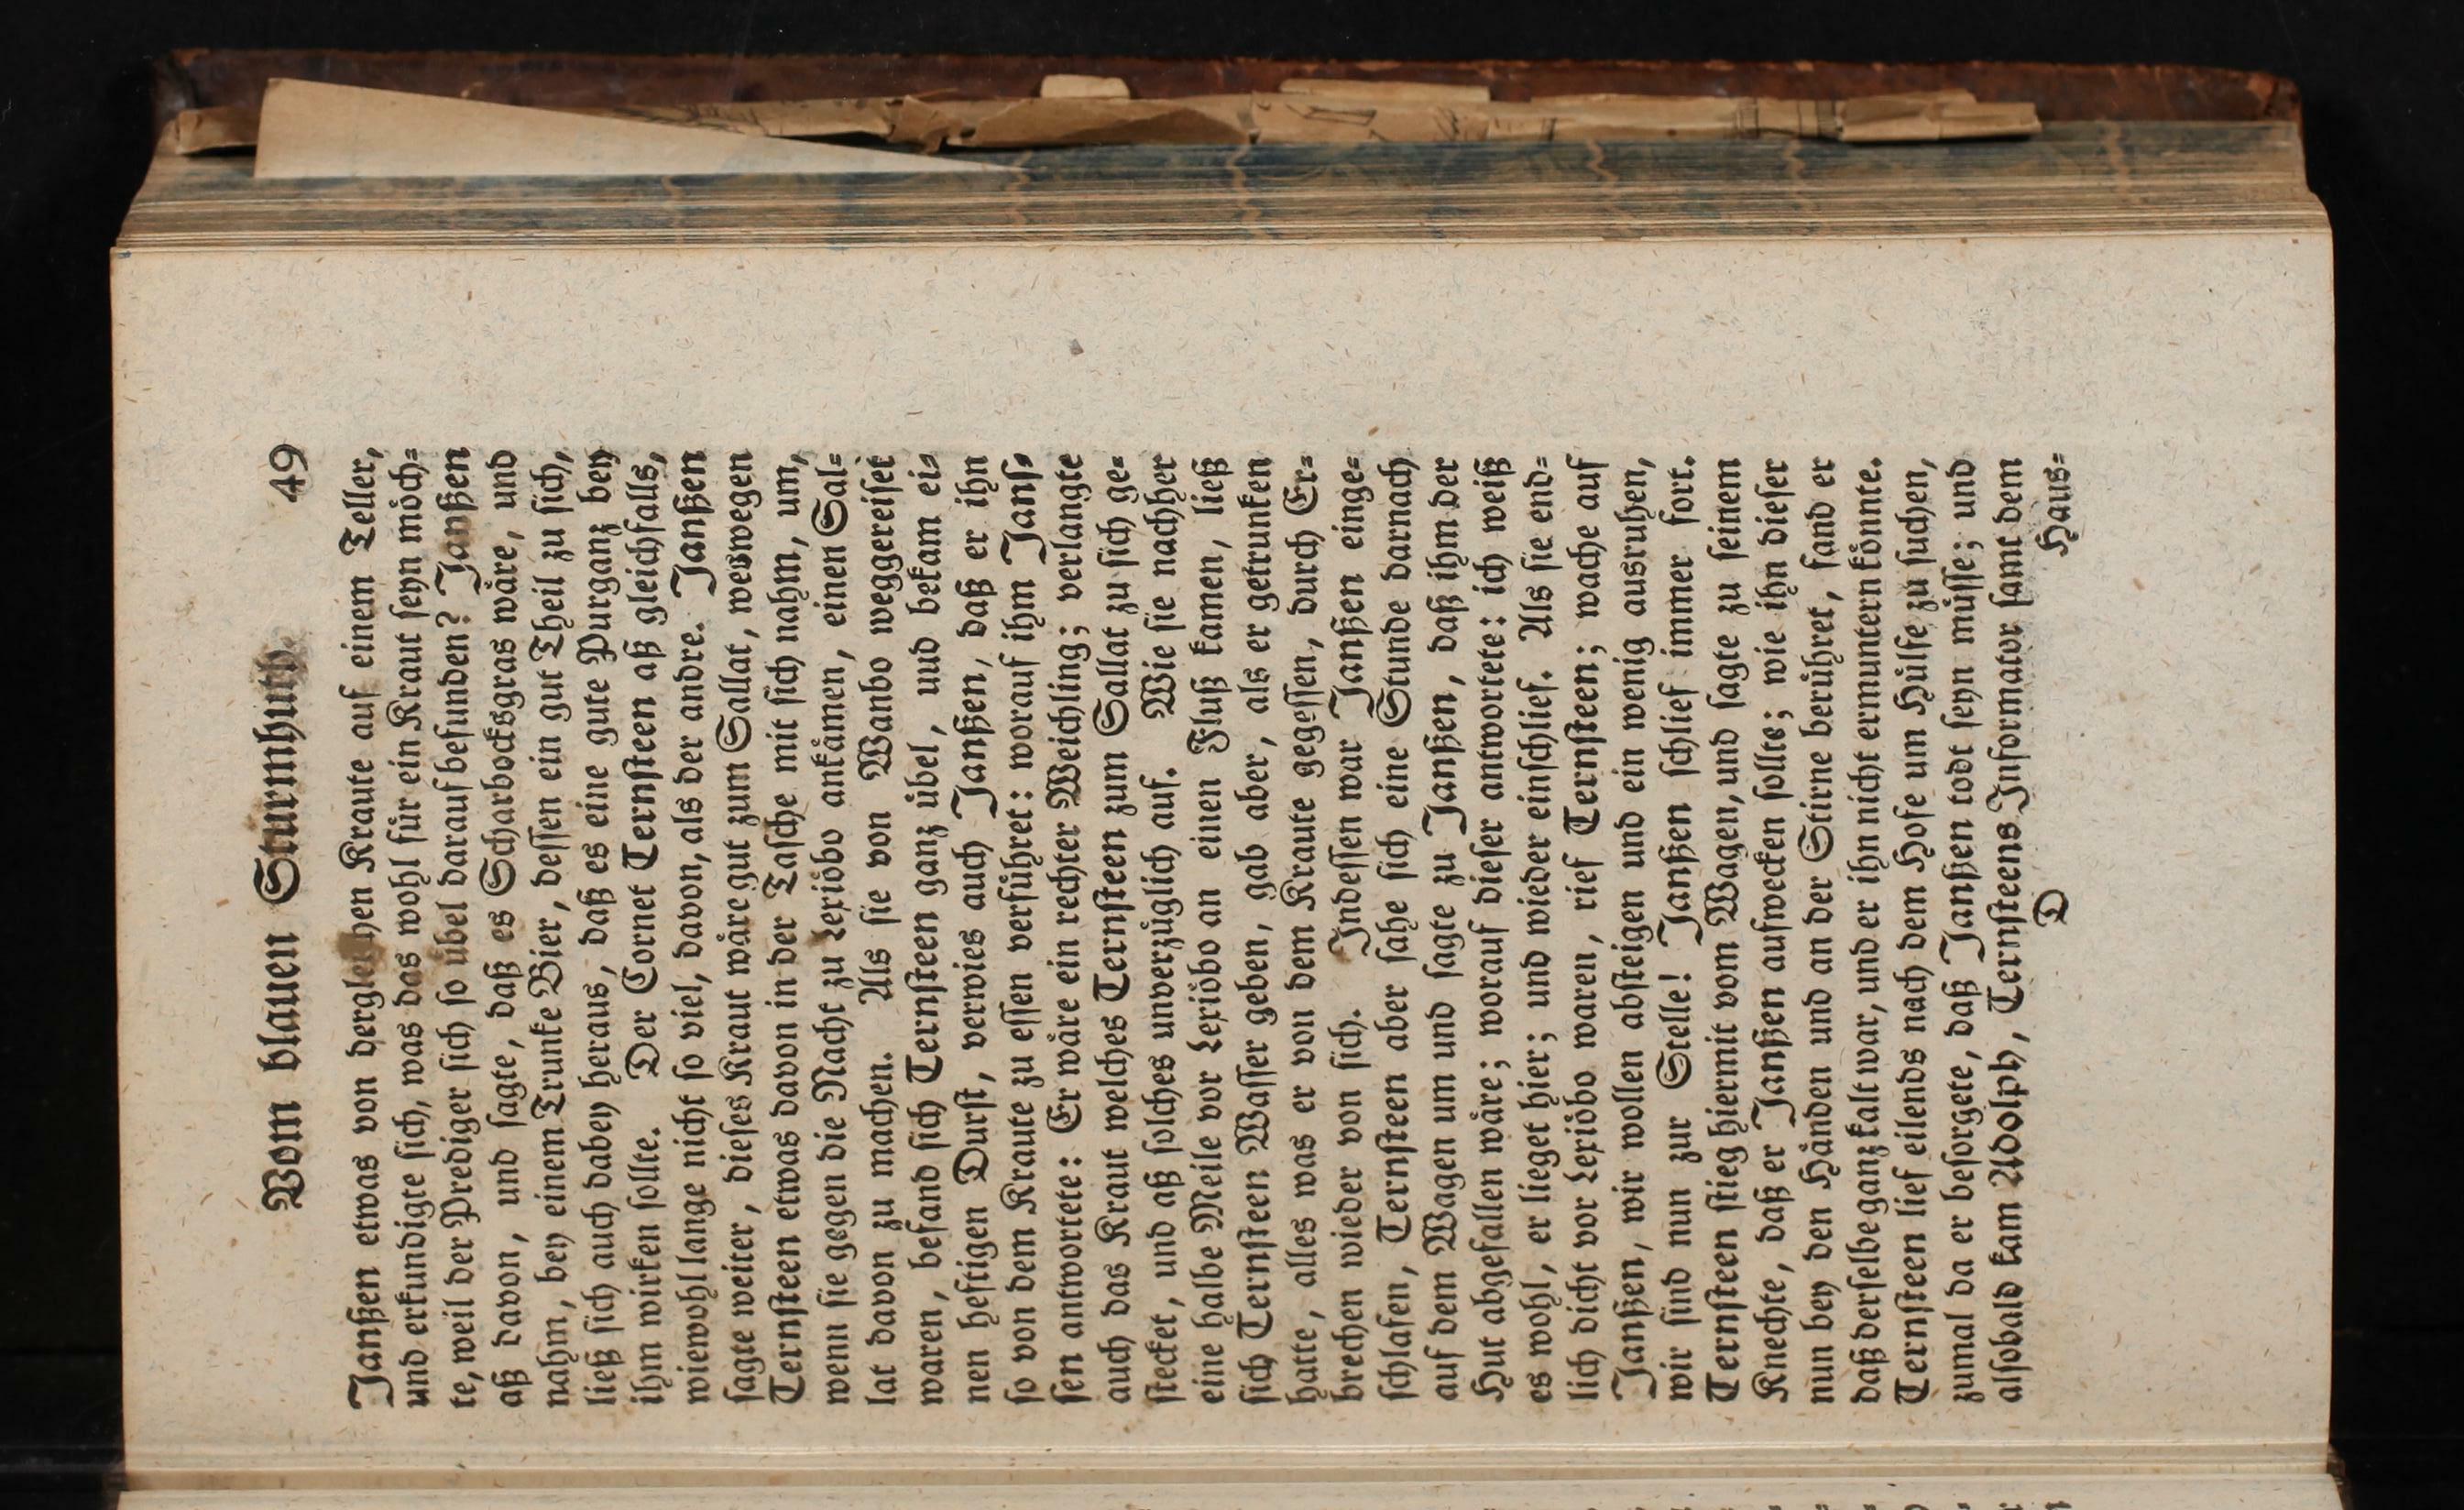 Vom blauen Sturmhuth. 49
Janßen etwas von dergleichen Kraute auf einem Teller,
und erkundigte sich, was das wohl für ein Kraut seyn möch=
te, weil der Prediger sich so übel darauf befunden? Janßen
aß davon, und sagte, daß es Scharbocksgras wäre, und
nahm, bey einem Trunke Bier, dessen ein gut Theil zu sich,
ließ sich auch dabey heraus, daß es eine gute Purganz bey
ihm wirken sollte. Der Cornet Ternsteen aß gleichfalls,
wiewohl lange nicht so viel, davon, als der andre. Janßen
sagte weiter, dieses Kraut wäre gut zum Sallat, weswegen
Ternsteen etwas davon in der Tasche mit sich nahm, um,
wenn sie gegen die Nacht zu Lexiöbo ankämen, einen Sal=
lat davon zu machen. Als sie von Wanbo weggereiset
waren, befand sich Ternsteen ganz übel, und bekam ei=
nen heftigen Durst, verwies auch Janßen, daß er ihn
so von dem Kraute zu essen verführet: worauf ihm Jans=
sen antwortete: Er wäre ein rechter Weichling; verlangte
auch das Kraut welches Ternsteen zum Sallat zu sich ge=
stecket, und aß solches unverzüglich auf. Wie sie nachher
eine halbe Meile vor Lexiöbo an einen Fluß kamen, ließ
sich Ternsteen Wasser geben, gab aber, als er getrunken
hatte, alles was er von dem Kraute gegessen, durch Er=
brechen wieder von sich. Indessen war Janßen einge=
schlafen, Ternsteen aber sahe sich eine Stunde darnach
auf dem Wagen um und sagte zu Janßen, daß ihm der
Hut abgefallen wäre; worauf dieser antwortete: ich weiß
es wohl, er lieget hier; und wieder einschlief. Als sie end=
lich dicht vor Lexiöbo waren, rief Ternsteen; wache auf
Janßen, wir wollen absteigen und ein wenig ausruhen,
wir sind nun zur Stelle! Janßen schlief immer fort.
Ternsteen stieg hiermit vom Wagen, und sagte zu seinem
Knechte, daß er Janßen aufwecken sollte; wie ihn dieser
nun bey den Händen und an der Stirne berühret, fand er
daß derselbe ganz kalt war, und er ihn nicht ermuntern könnte.
Ternsteen lief eilends nach dem Hofe um Hülfe zu suchen,
zumal da er besorgete, daß Janßen todt seyn müsse; und
alsobald kam Adolph, Ternsteens Informator samt dem
D Haus=